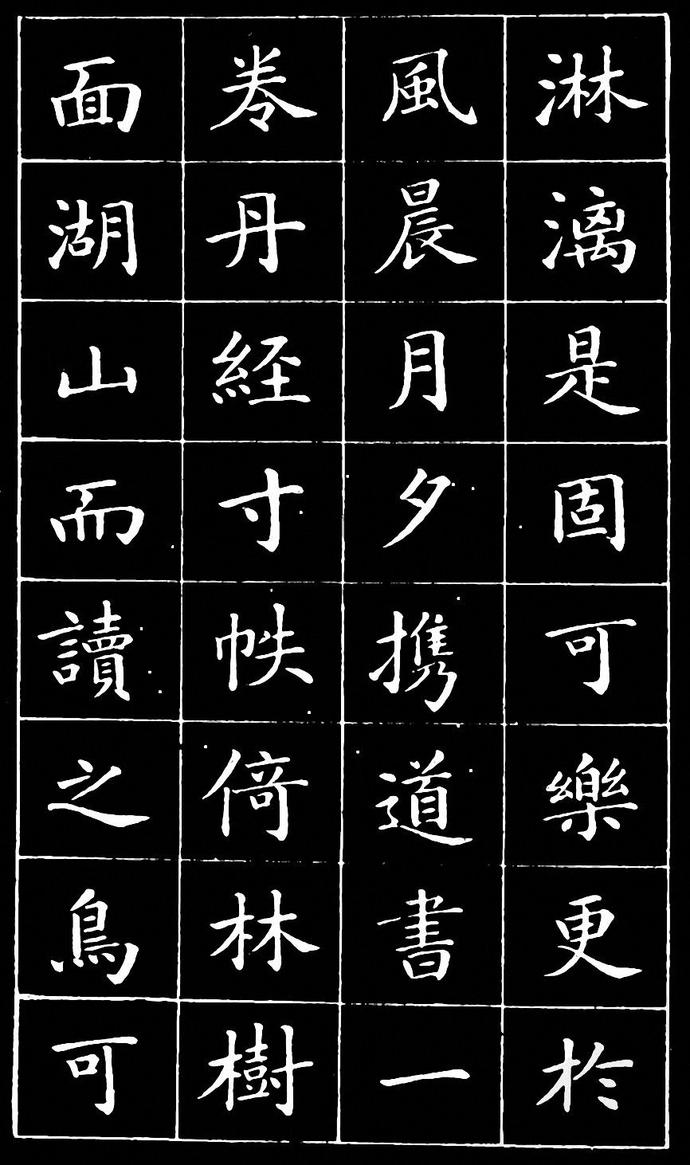 淋漓是固可樂更於
風晨月夕攜道書一
卷丹經寸帙倚林樹
面湖山而讀之鳥可